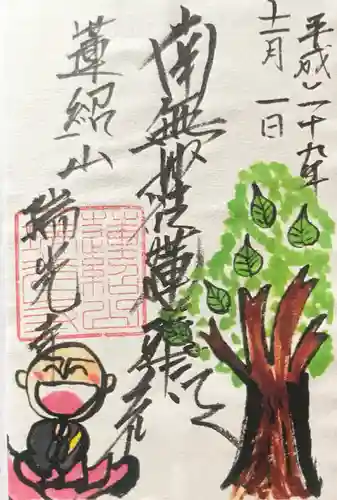 平成二十九年
十二月一日
南無妙法蓮華経
蓮紹山
瑞光寺